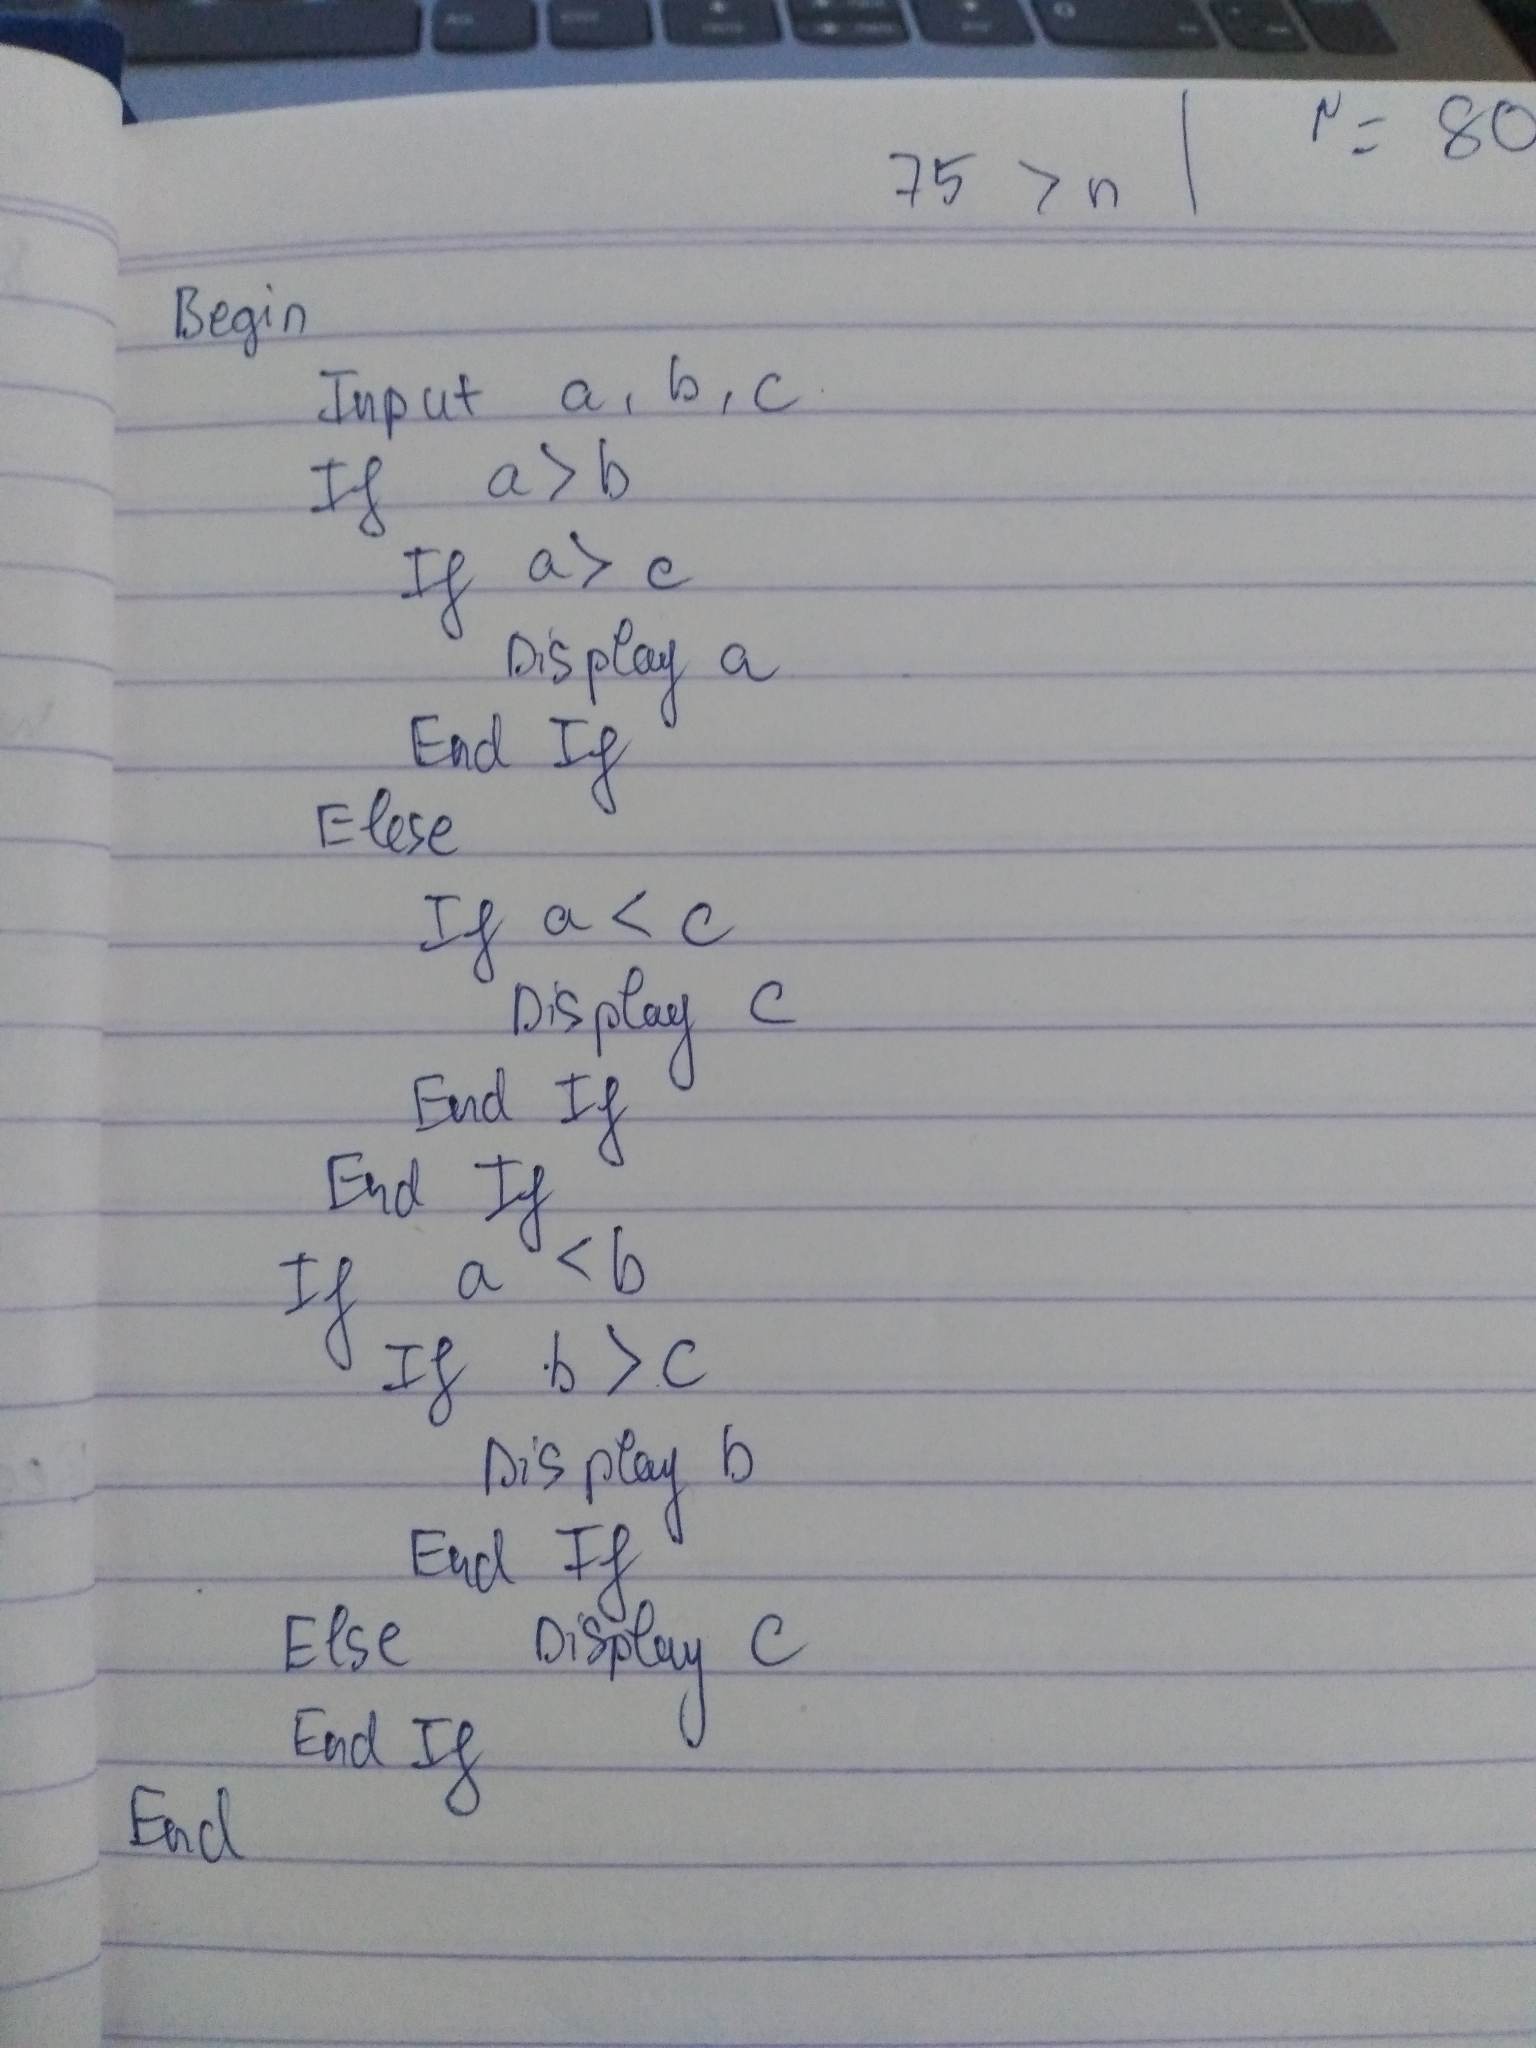 75 > n | n = 80
Begin
Input a, b, c
If a > b
If a > c
Display a
End If
Elese
If a < c
Display c
End If
End If
If a < b
If b > c
Display b
End If
Else Display c
End If
End